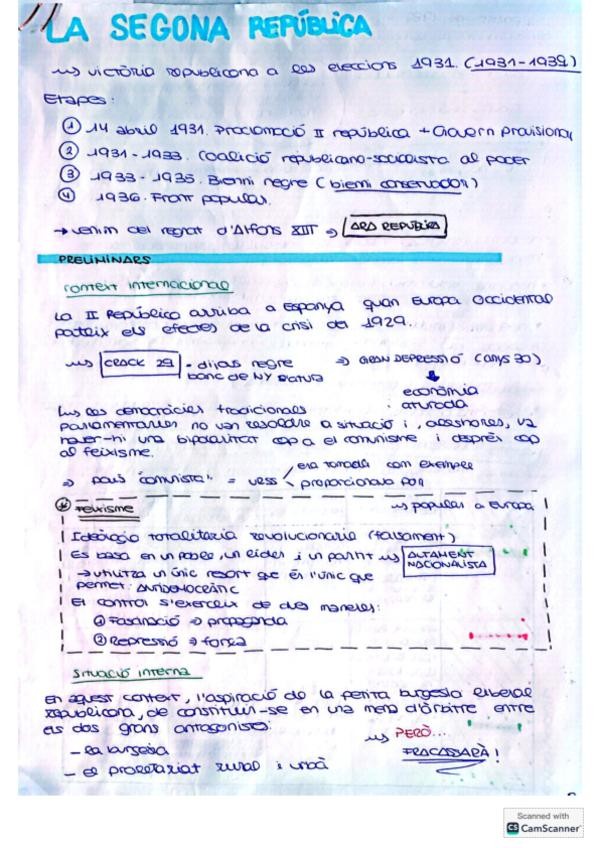 LA SEGONA REPÚBLICA
victòria republicana a les eleccions 1931. (1931-1939)
Etapes:
① 14 abril 1931. Proclamació II república + Govern provisional
② 1931-1933. Coalició republicano-socialista al poder
③ 1933-1935. Bienni negre (bienni conservador)
④ 1936. Front popular.
→ venim del regnat d'Alfons XIII ⇒ ARA REPÚBLICA
PRELIMINARS
context internacional
La II República arriba a Espanya quan Europa Occidental
pateix els efectes de la crisi del 1929.
CRACK 29 • dijous negre ⇒ GRAN DEPRESSIÓ (anys 30)
banc de NY
economia
aturada
les democràcies tradicionals
parlamentàries no van resoldre a situació i, aleshores, va
haver-hi una bipolaritat cap a el comunisme i després cap
al feixisme.
⇒ país "comunista" = URSS era tomada com exemple
proporcionava por
Feixisme popular a Europa
Ideologia totalitària revolucionària (falsament)
Es basa en un poble, un líder i un partit ALTAMENT
NACIONALISTA
→ utilitza un únic resort que és l'únic que
permet: ANTIDEMOCRÀTIC
El control s'exerceix de dues maneres:
① Fascinació ⇒ propaganda
② Repressió ⇒ força
Situació interna
En aquest context, l'aspiració de la petita burgesia liberal
republicana, de constituir-se en una mena d'àrbitre entre
els dos grans antagonistes: PERÒ...
- la burgesia FRACASSARÀ!
- el proletariat rural i urbà
Scanned with
CS CamScanner